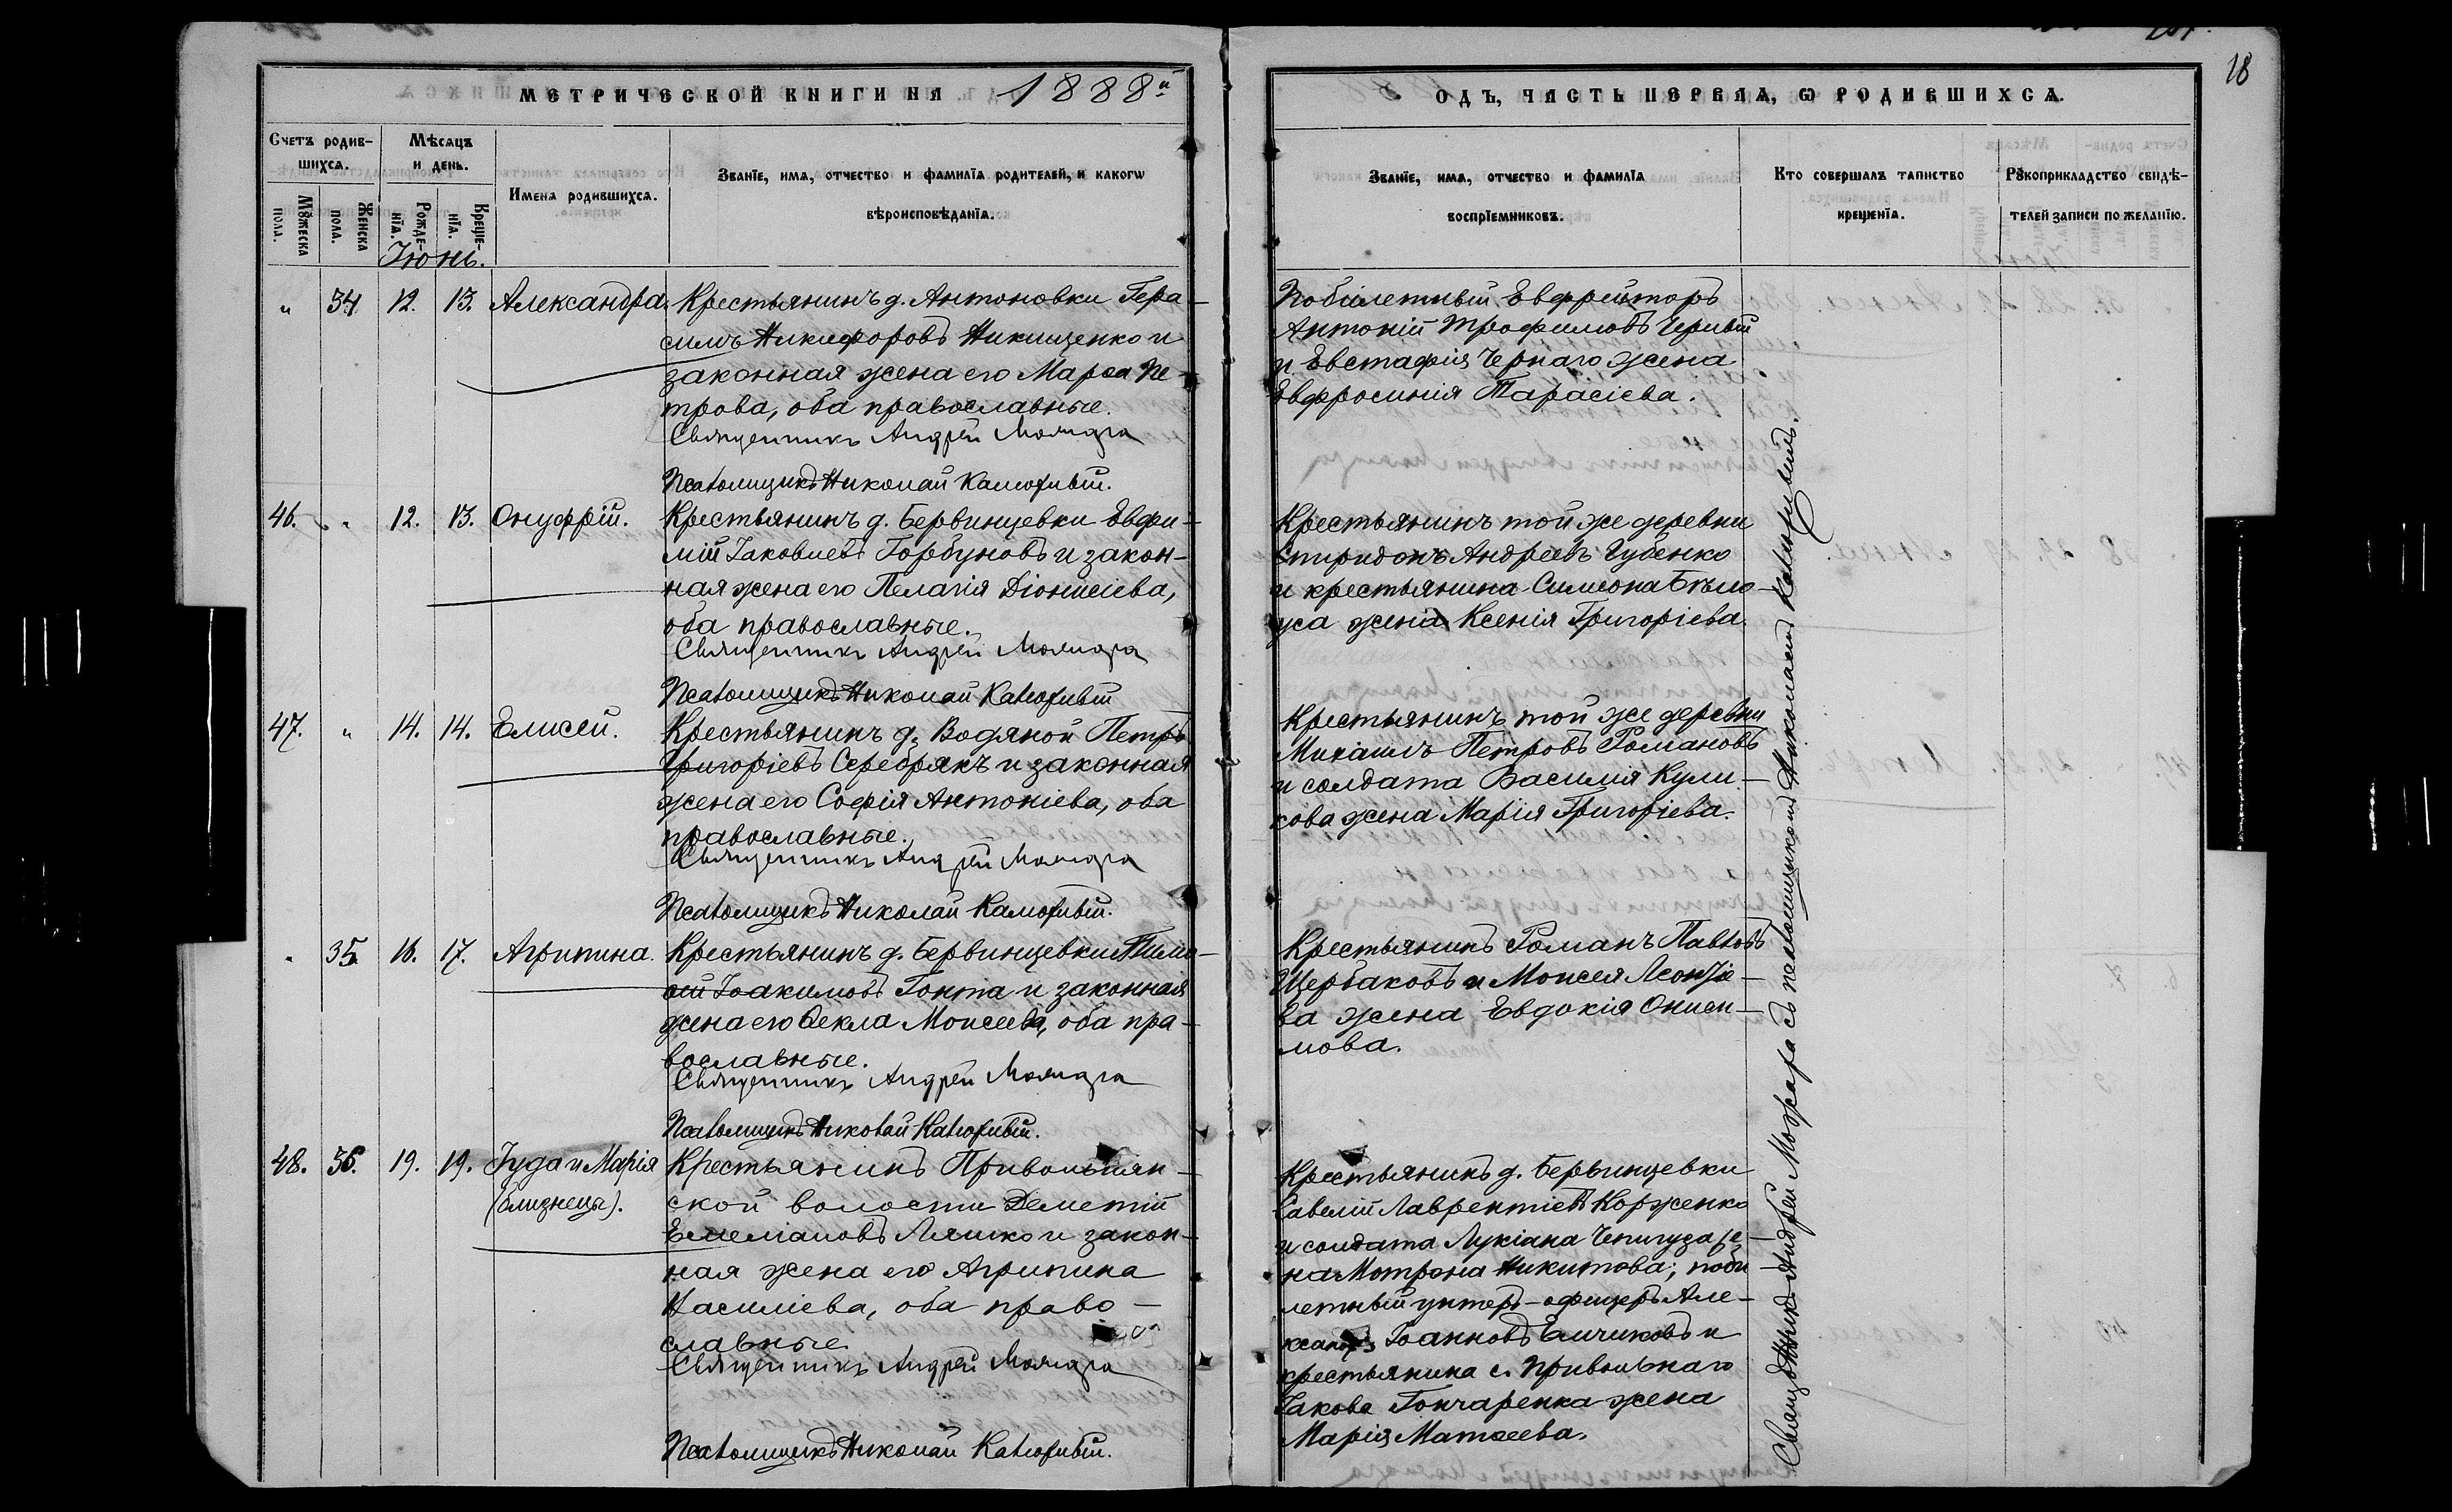 18
МЕТРИЧЕСКОЙ КНИГИ НА 1888й
ОДЪ, ЧАСТЬ ПЕРВАЯ, Ѡ РОДИВШИХСѦ.
Счетъ родив-
шихсѧ.
Мѣсяцъ
и день.
Имена родившихсѧ.
Званїе, имѧ, отчество и фамилїѧ родителей, и какогѡ
вѣроисповѣданїѧ.
Мꙋжеска
пола.
Женска
пола.
Рожде-
нїѧ.
Креще-
нїѧ.
Іюнь.
Званїе, имѧ, отчество и фамилїѧ
воспрїемниковъ.
Кто совершалъ таинство
крещенїѧ.
Рꙋкоприкладство свидѣ-
телей записи по желанїю.
" 34. 12. 13. Александра. Крестьянинъ д. Антоновки Гера-
симъ Никифоровъ Никищенко и
законная жена его Марѳа Пе-
трова, оба православные.
Священникъ Андрей Можара
Псаломщикъ Николай Калюжный.
Побілетный Евфрейторъ
Антоній Трофимовъ Черный
и Евстафія Чернаго жена
Евфросинія Тарасіева.
46. " 12. 13. Онуфрій. Крестьянинъ д. Бервинцевки Евфи-
мій Іаковлевъ Горбуновъ и закон-
ная жена его Пелагія Діонисіева,
оба православные.
Священникъ Андрей Можара
Псаломщикъ Николай Калюжный
Крестьянинъ той же деревни
Спиридонъ Андреевъ Губенко
и крестьянина Симеона Бѣло-
уса жена Ксенія Григоріева.
47. " 14. 14. Елисей. Крестьянинъ д. Водяной Петръ
Григоріевъ Серебрякъ и законная
жена его Софія Антоніева, оба
православные.
Священникъ Андрей Можара
Псаломщикъ Николай Калюжный.
Крестьянинъ той же деревни
Михаилъ Петровъ Романовъ
и солдата Василія Кули-
кова жена Марія Григоріева.
" 35. 16. 17. Агрипина. Крестьянинъ д. Бервинцевки Тимо-
ѳей Іоакимовъ Гонта и законная
жена его Ѳекла Моисеева, оба пра-
вославные.
Священникъ Андрей Можара
Псаломщикъ Николай Калюжный.
Крестьянинъ Романъ Павловъ
Щербаковъ и Моисея Леонтіе-
ва жена Евдокія Ониси-
мова.
48. 36. 19. 19. Іуда и Марія
(близнецы).
Крестьянинъ Привольнян-
ской волости Деметій
Емеліановъ Ляшко и закон-
ная жена его Агрипина
Василіева, оба право-
славные.
Священникъ Андрей Можара
Псаломщикъ Николай Калюжный.
Крестьянинъ д. Бервинцевки
Савелій Лаврентіевъ Корженко
и солдата Лукіана же-
на Мотрона Никитова; поби-
летный унтеръ-офицеръ Але-
ксандръ Іоанновъ Елчиковъ и
крестьянина с. Привольнаго
Іакова Гончаренка жена
Марія Матѳеева.
Священникъ Андрей Можара съ псаломщикомъ Николаемъ Калюжнымъ.